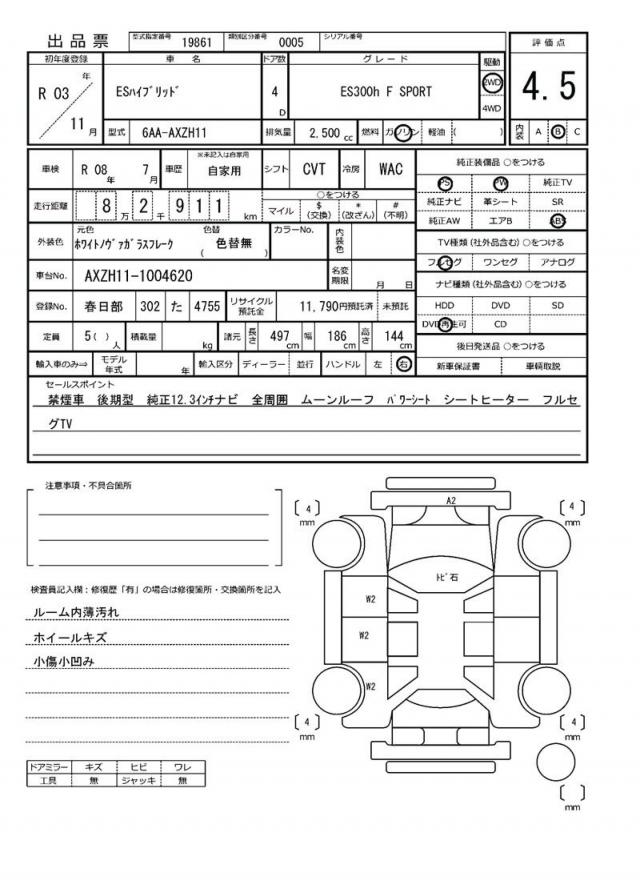 出品票 型式指定番号 19861 類別区分番号 0005 シリアル番号
初年度登録 車名 ドア数 グレード 駆動 評価点
R 03 年 11 月 ESﾊｲﾌﾞﾘｯﾄﾞ 4 D ES300h F SPORT 2WD 4WD 4.5
型式 6AA-AXZH11 排気量 2,500 cc 燃料 ガソリン 軽油 ( ) 内装 A B C
車検 R 08 年 7 月 車歴 ※未記入は自家用 自家用 シフト CVT 冷房 WAC
走行距離 8 万 2 千 9 1 1 km ○をつける マイル $ (交換) * (改ざん) # (不明)
外装色 元色 ﾎﾜｲﾄﾉｳﾞｧｶﾞﾗｽﾌﾚｰｸ 色替 ( 色替無 ) カラーNo. 内装色
車台No. AXZH11-1004620 名変期限 月 日
登録No. 春日部 302 た 4755 リサイクル預託金 11,790円預託済 未預託
定員 5( ) 人 積載量 kg 諸元 長さ 497 cm 幅 186 cm 高さ 144 cm
輸入車のみ⇒ モデル年式 年 輸入区分 ディーラー 並行 ハンドル 左 右
純正装備品 ○をつける
PS PW 純正TV
純正ナビ 革シート SR
純正AW エアB ABS
TV種類 (社外品含む) ○をつける
フルセグ ワンセグ アナログ
ナビ種類 (社外品含む) ○をつける
HDD DVD SD
DVD再生可 CD
後日発送品 ○をつける
新車保証書 車輌取説
セールスポイント
禁煙車 後期型 純正12.3ｲﾝﾁナビ 全周囲 ムーンルーフ ﾊﾟﾜｰｼｰﾄ シートヒーター フルセ
グTV
注意事項・不具合箇所
検査員記入欄：修復歴「有」の場合は修復箇所・交換箇所を記入
ルーム内薄汚れ
ホイールキズ
小傷小凹み
ドアミラー キズ ヒビ ワレ
工具 無 ジャッキ 無
[ 4 ] mm A2 [ 4 ] mm
ﾄﾋﾞ石
W2
W2
W2
[ 4 ] mm [ 4 ] mm
[ ] mm